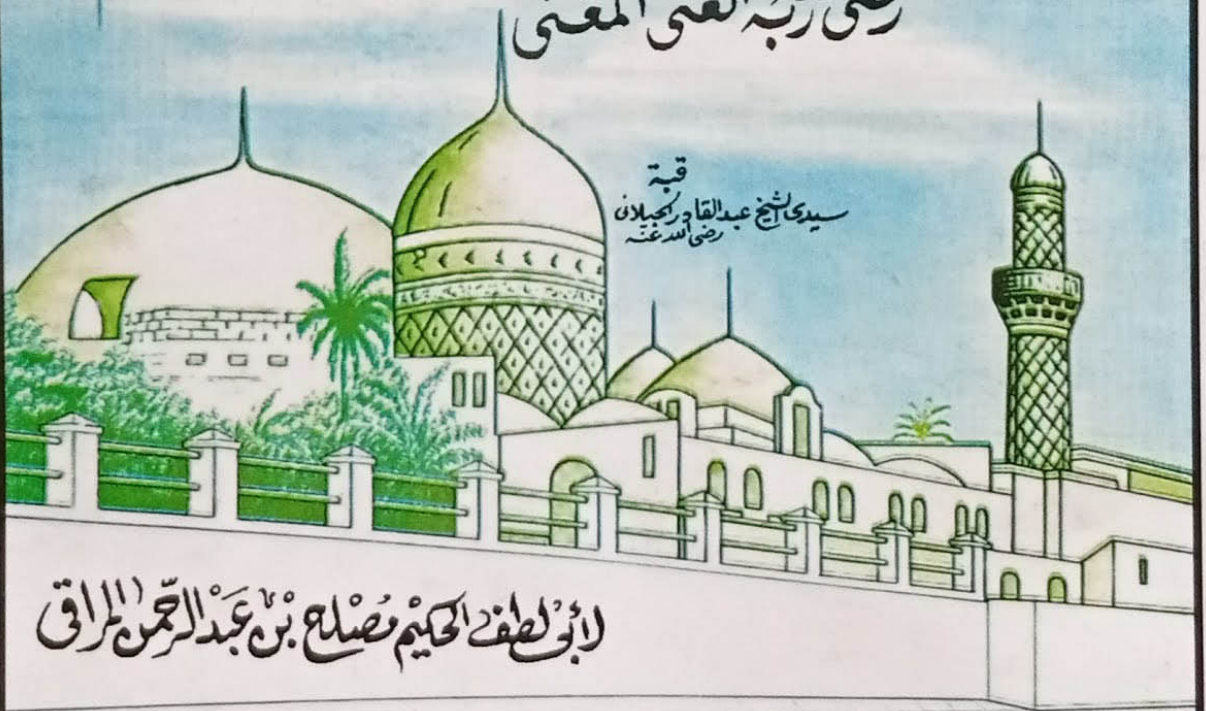 رضى ربه الغنى المغنى
قبة
سيدى الشيخ عبدالقادر الجيلانى
رضى الله عنه
لأبى لطف الحكيم مُصْلِح بْن عَبْدالرَّحْمن المراقى